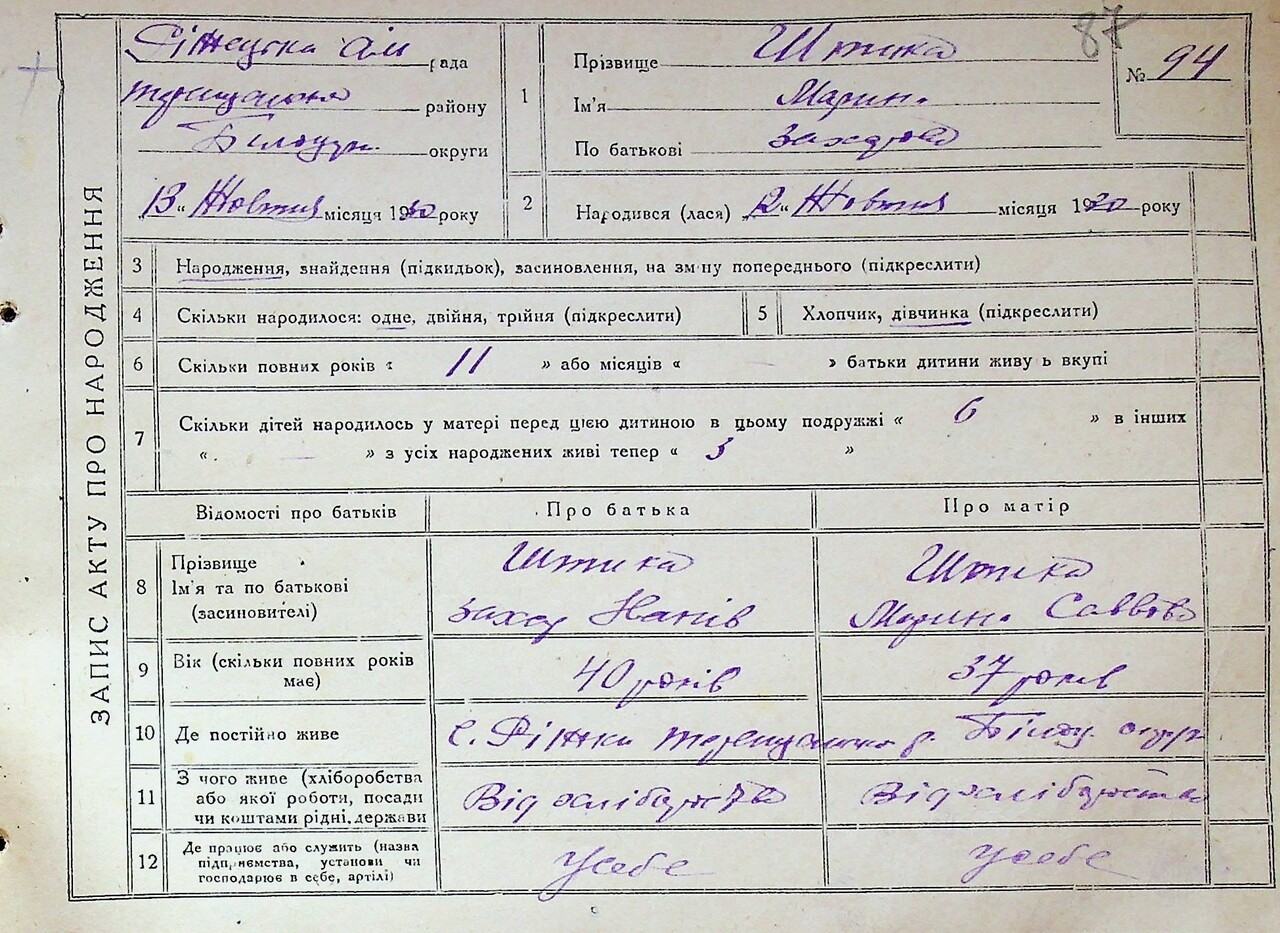 87
№ 94
ЗАПИС АКТУ ПРО НАРОДЖЕННЯ
рада
району
округи
13 " Жовтня місяця 1930 року
1
Прізвище Штика
Ім'я Марина
По батькові Захарова
2
Народився (лася) 12 " Жовтня місяця 1930 року
3 Народження, знайдення (підкидьок), засиновлення, на зміну попереднього (підкреслити)
4 Скільки народилося: одне, двійня, трійня (підкреслити)
5 Хлопчик, дівчинка (підкреслити)
6 Скільки повних років « 11 » або місяців « — » батьки дитини живуть вкупі
7 Скільки дітей народилось у матері перед цією дитиною в цьому подружжі « 6 » в інших
« — » з усіх народжених живі тепер « 3 »
Відомості про батьків Про батька Про матір
8 Прізвище
Ім'я та по батькові
(засиновителі)
Штика
Захар Іванів
Штика
Марина Саввова
9 Вік (скільки повних років
має)
40 років
37 років
10 Де постійно живе
с. Ріжки
11 З чого живе (хліборобства
або якої роботи, посади
чи коштами рідні, держави
Від хліборобства
Від хліборобства
12 Де працює або служить (назва
підприємства, установи чи
господарює в себе, артілі)
у себе
у себе